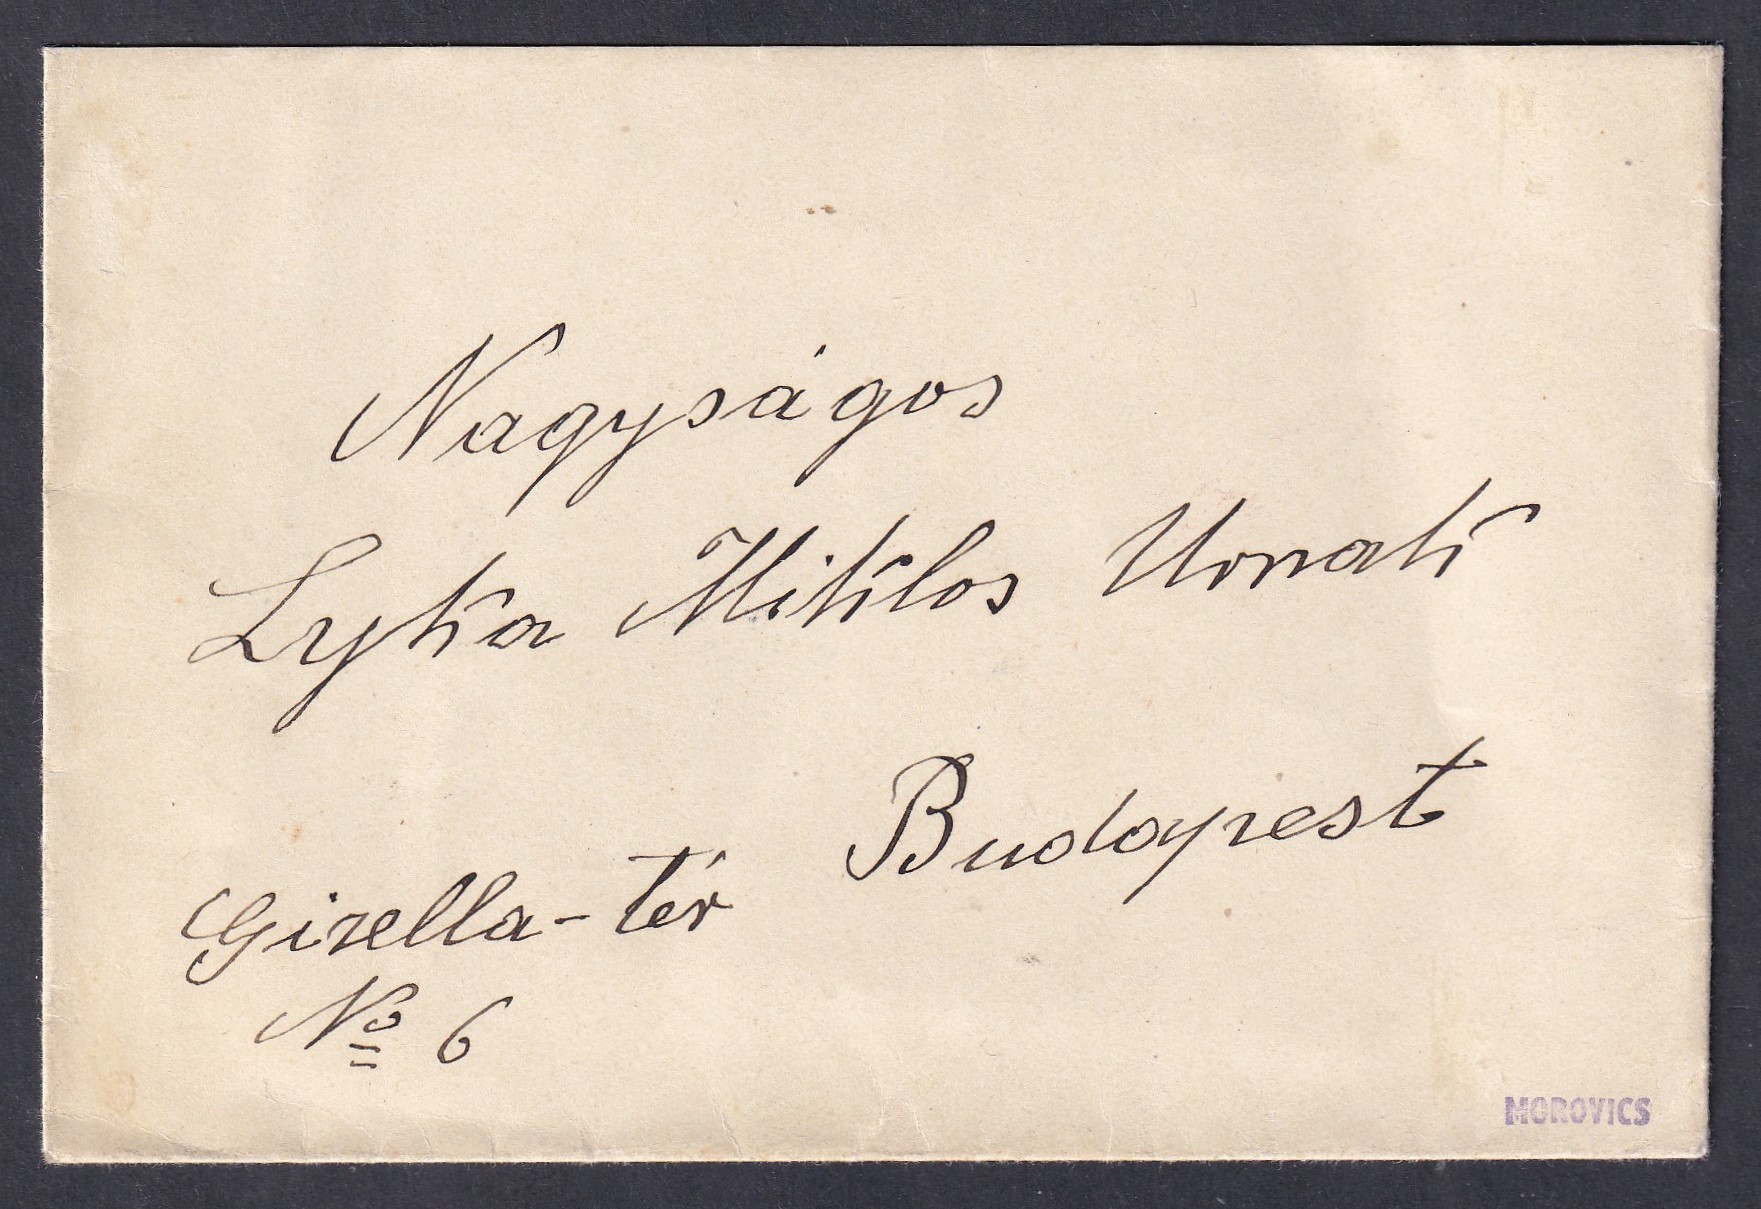 Nagyságos
Lyka Miklos Urnak
Budapest
Gizella-tér
No 6
MOROVICS